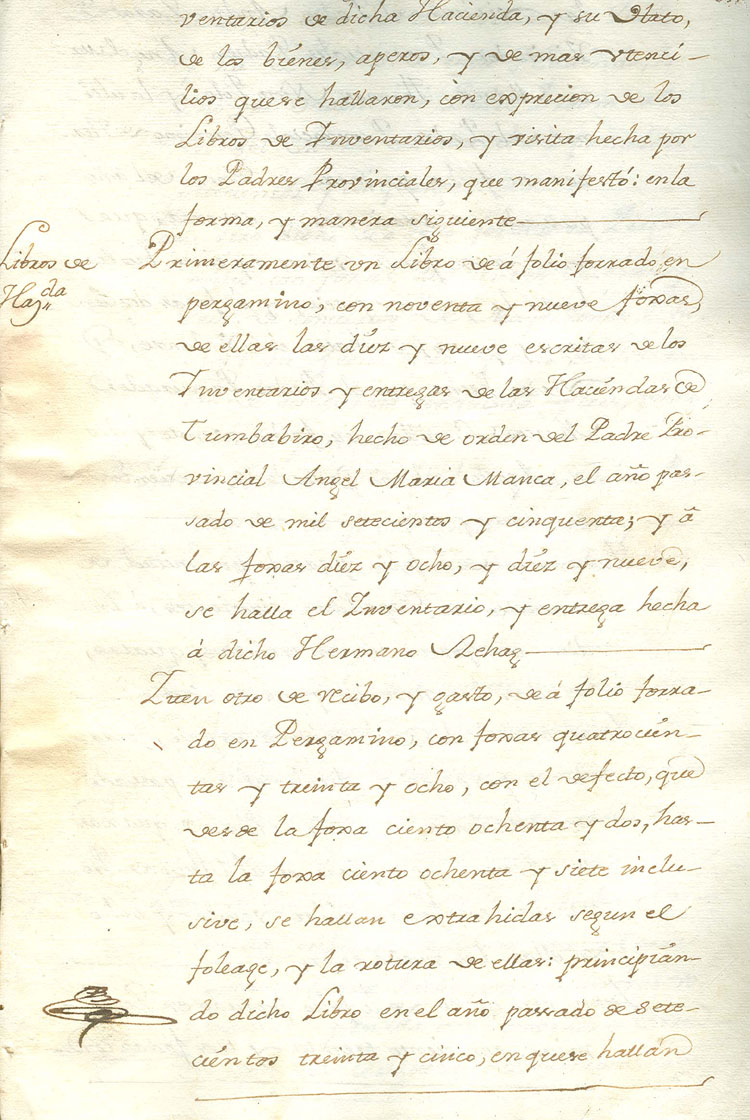 ventarios de dicha Hacienda, y su Hato,
de los biénes, aperos, y de mas vtenci-
lios que se hallaron, con exprecion de los
Libros de Inventarios, y visita hecha por
los Padres Provinciales, que manifestó: en la
forma, y manera siguiente
Libros de
Haz.da
Primeramente vn Libro de á folio forrado en
pergamino, con noventa y nueve foxas,
de ellas las diéz y nueve escritas de los
Inventarios y entregas de las Haciéndas de
Tumbabiro, hecho de orden del Padre Pro-
vincial Angel Maria Manca, el año pas-
sado de mil setecientos y cinquenta; y á
las foxas diéz y ocho, y diéz y nueve,
se halla el Inventario, y entrega hecha
á dicho Hermano
Iten otro de recibo, y gasto, de á folio forra-
do en Pergamino, con foxas quatrocién-
tas y treinta y ocho, con el defecto, que
desde la foxa ciento ochenta y dos, has-
ta la foxa ciento ochenta y siete inclu-
sive, se hallan extrahidas segun el
foleage, y la rotura de ellas: principián-
do dicho Libro en el año passado de sete-
ciéntos treinta y cinco, en que se hallan